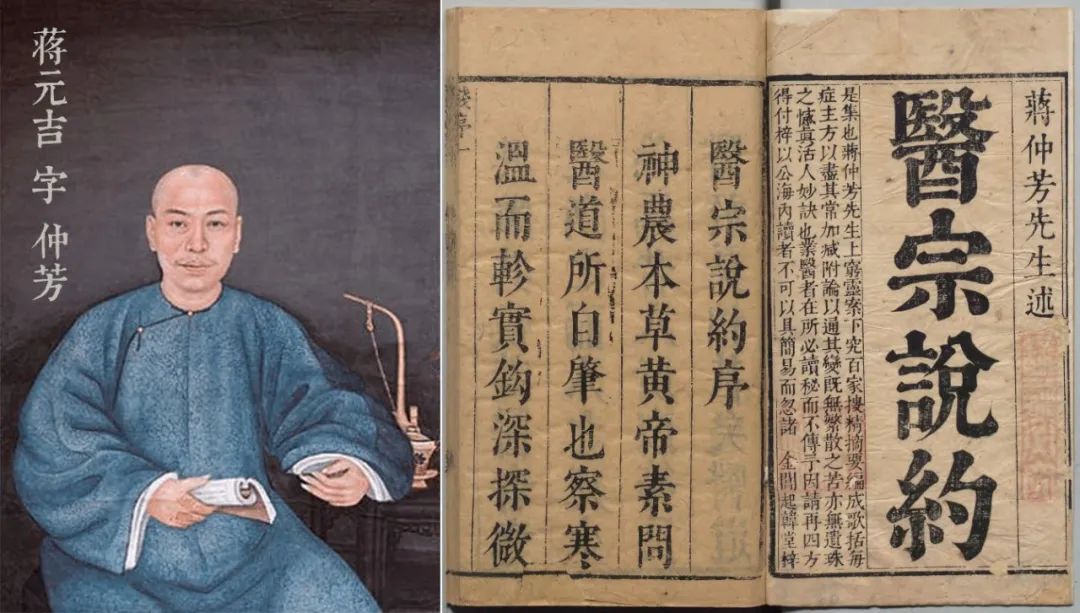 蒋元吉 字 仲芳
蔣仲芳先生述
醫宗說約
是集也蔣仲芳先生上窮靈案下究百家搜精摘要編成歌括每
症主方以盡其常加减附論以通其變既無繁散之苦亦無遺珠
之憾眞活人妙訣也業醫者在所必讀秘而不傳予因請再四方
得付梓以公海內讀者不可以具簡易而忽諸 金閶起韓堂梓
醫宗說約序
神農本草黃帝素問
醫道所自肇也察寒
溫而軫實鈎深探微